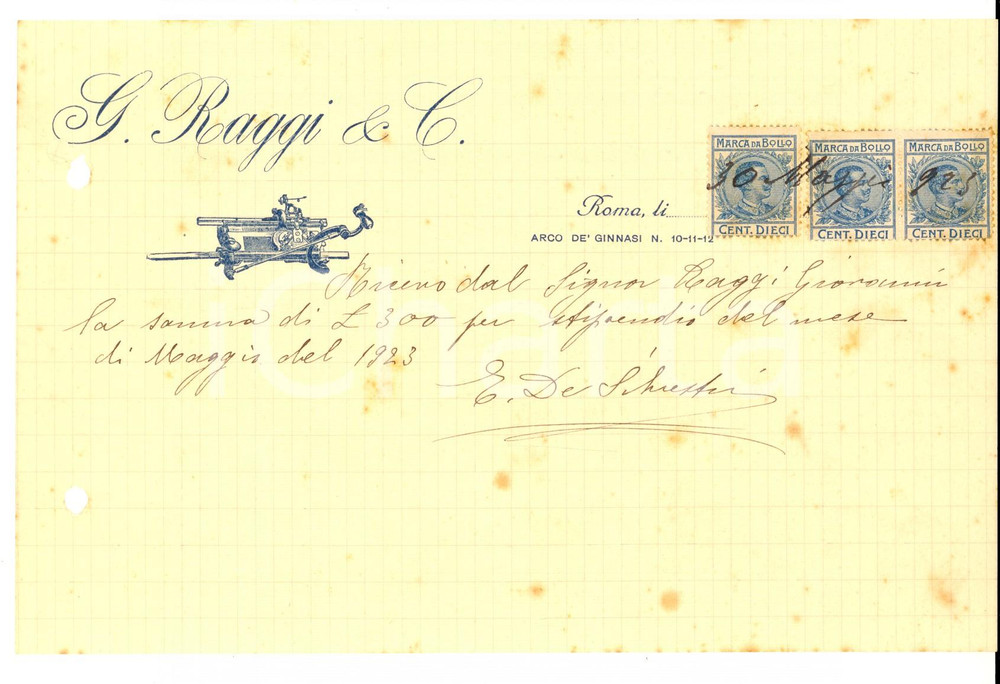 G. Raggi & C.
MARCA DA BOLLO MARCA DA BOLLO MARCA DA BOLLO
30 Maggio 923
CENT. DIECI CENT. DIECI CENT. DIECI
Roma, li
ARCO DE' GINNASI N. 10-11-12
Ricevo dal Signor Raggi Giovanni
la somma di £ 300 per stipendio del mese
di Maggio del 1923
E. De Silvestri